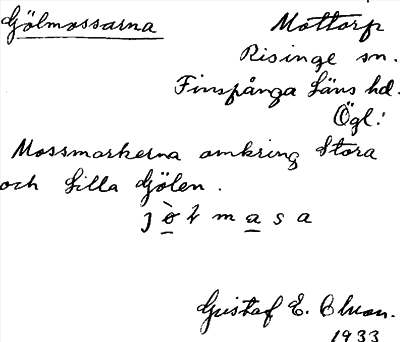 Gölmossarna
Mottorp
Risinge sn.
Finspånga Läns hd.
Ögl.
Mossmarkerna omkring Stora
och Lilla Gölen.
Gustaf E. Olsson.
1933